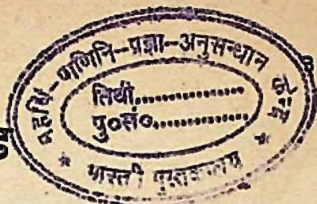 महर्षि-पाणिनि-प्रज्ञा-अनुसन्धान केन्द्र
तिथी..................
पु०सं०................
* भारती पुस्तकालय *